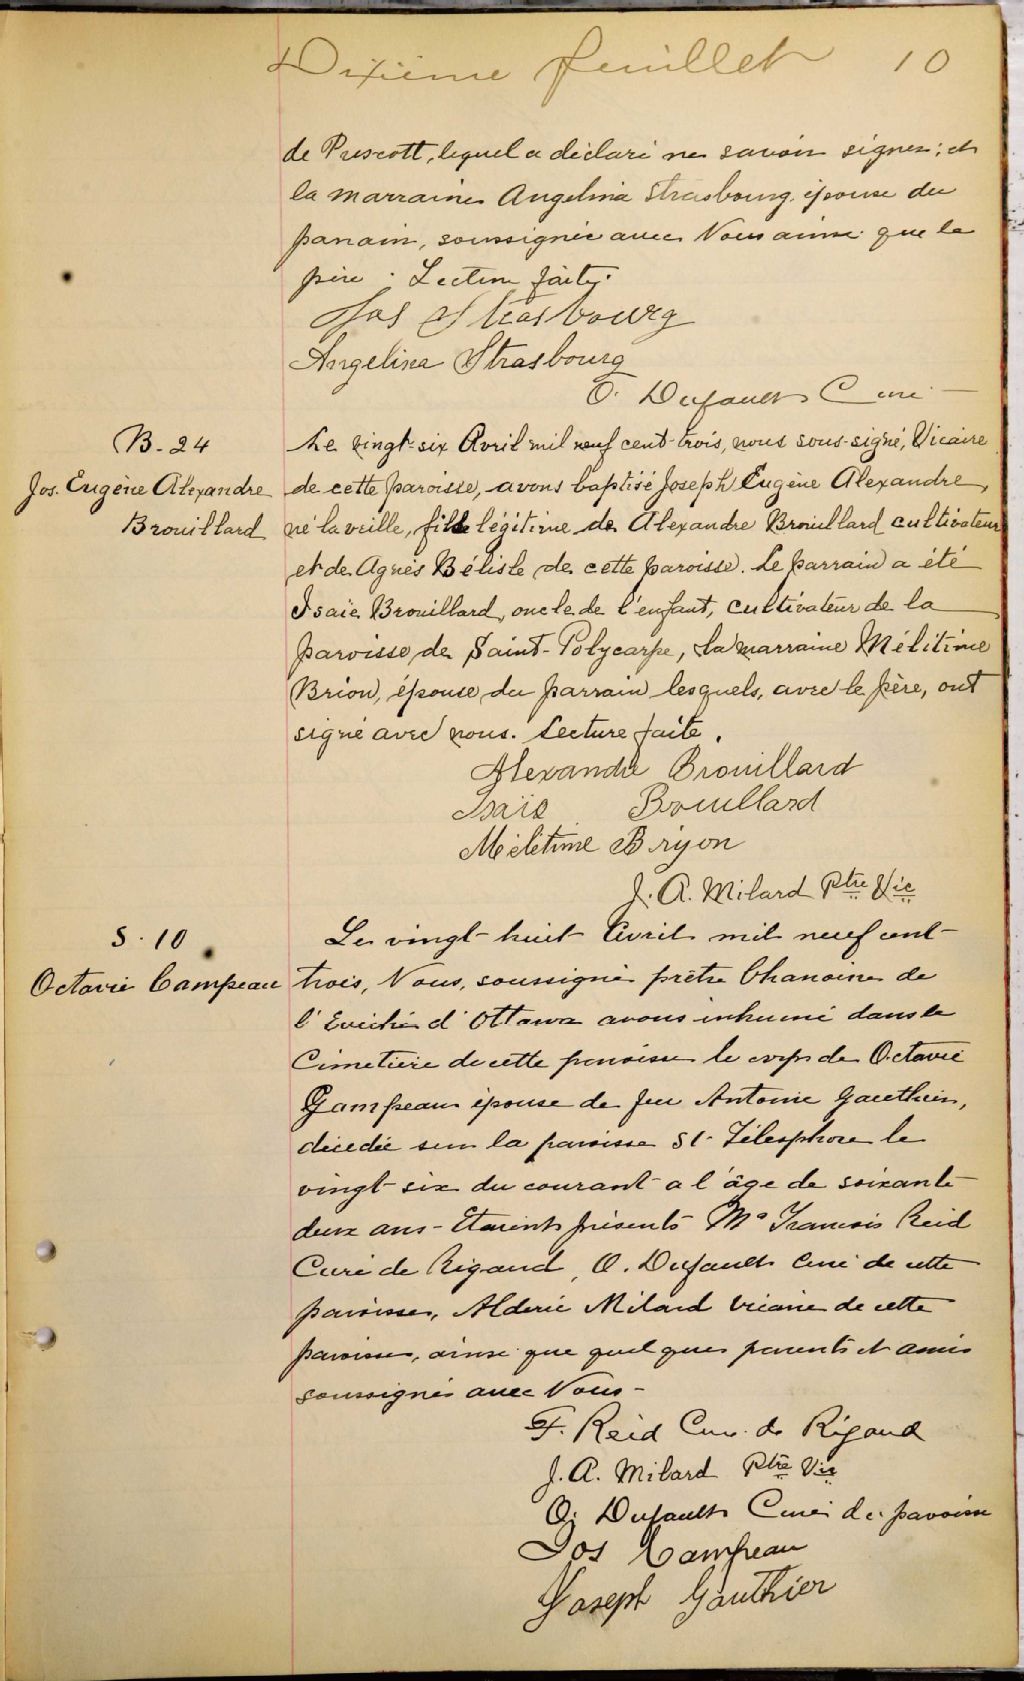 Dixième feuillet 10
de Prescott, lequel a déclaré ne savoir signer; et
la marraine Angelina Strasbourg épouse du
parrain, soussignée avec Nous ainsi que le
père. Lecture faite.
Jos Strasbourg
Angelina Strasbourg
O. Dufault Curé
B-24
Jos. Eugène Alexandre
Brouillard
Le vingt-six Avril mil neuf cent-trois, nous sous-signé, Vicaire
de cette paroisse, avons baptisé Joseph Eugène Alexandre,
né la veille, fils légitime de Alexandre Brouillard cultivateur
et de Agnès Bélisle de cette paroisse. Le parrain a été
Isaïe Brouillard, oncle de l'enfant, cultivateur de la
paroisse de Saint-Polycarpe, la marraine Mélitime
Brion, épouse du parrain lesquels, avec le père, ont
signé avec nous. Lecture faite.
Alexandre Brouillard
Isaïe Brouillard
Mélétime Bryon
J. A. Milard Ptre Vic
S-10
Octavie Campeau
Le vingt-huit Avril mil neuf cent-
trois, Nous, soussigné prêtre Chanoine de
l'Evêché d'Ottawa avons inhumé dans le
Cimetière de cette paroisse le corps de Octavie
Campeau épouse de feu Antoine Gauthier,
décédée sur la paroisse St-Télesphore le
vingt-six du courant a l'âge de soixante
deux ans - Etaient présents Mr Francois Reid
Curé de Rigaud, O. Dufault Curé de cette
paroisse, Alderic Milard vicaire de cette
paroisse, ainsi que quelques parents et amis
soussignés avec Nous-
F. Reid Cur. de Rigaud
J. A. Milard Ptre Vic
O. Dufault Curé de paroisse
Jos Campeau
Joseph Gauthier